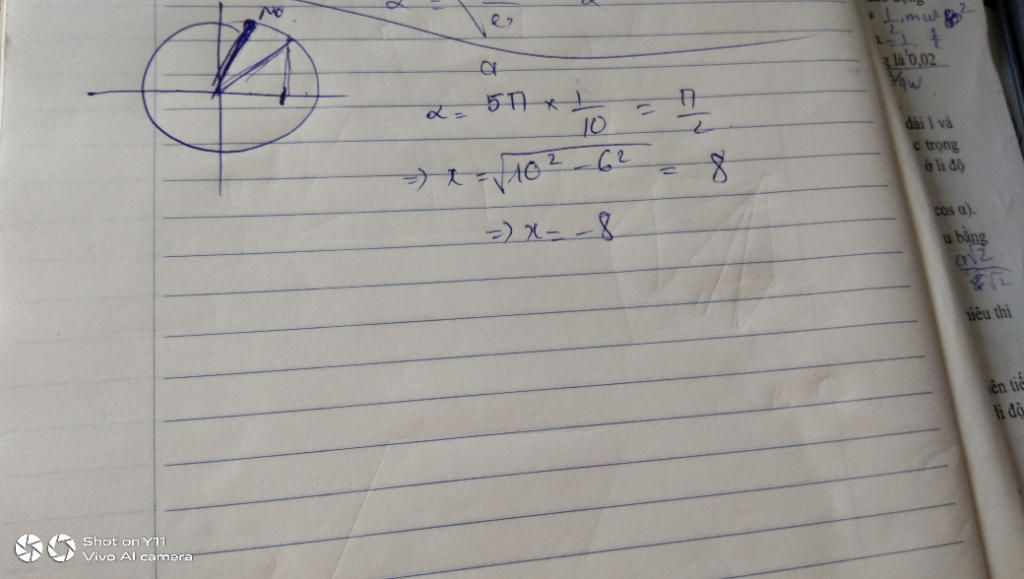 α = 5π × 1/10 = π/2
=> x = √10² - 6² = 8
=> x = -8
là 0,02
dài l và
c trọng
ở li độ
cos α).
u bằng
a√2
hiêu thì
ên tiế
li độ
Shot on Y11
Vivo AI camera